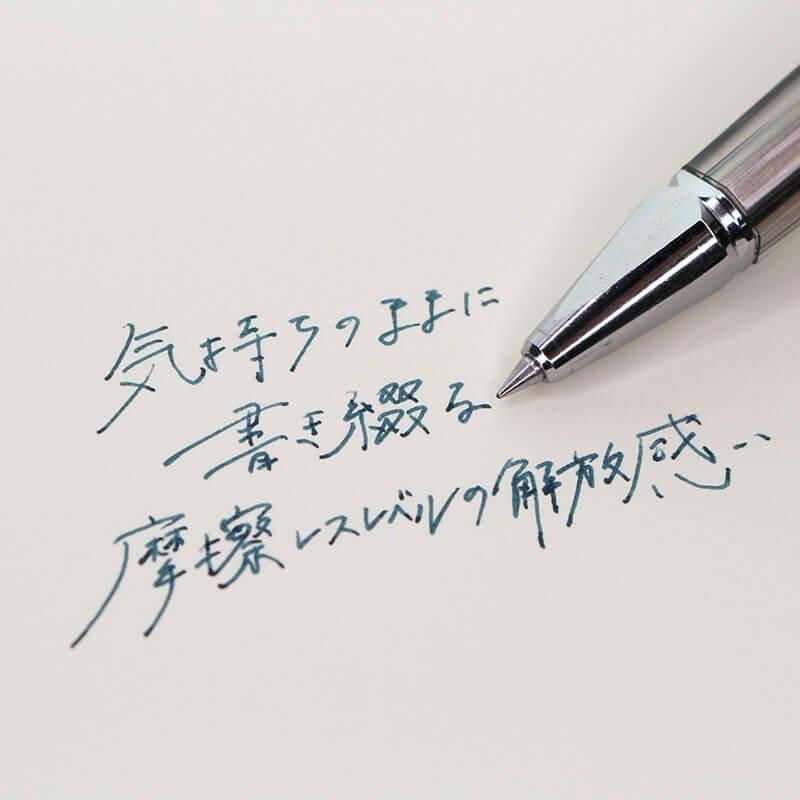 気持ちのままに
書き綴る
摩擦レスレベルの解放感…